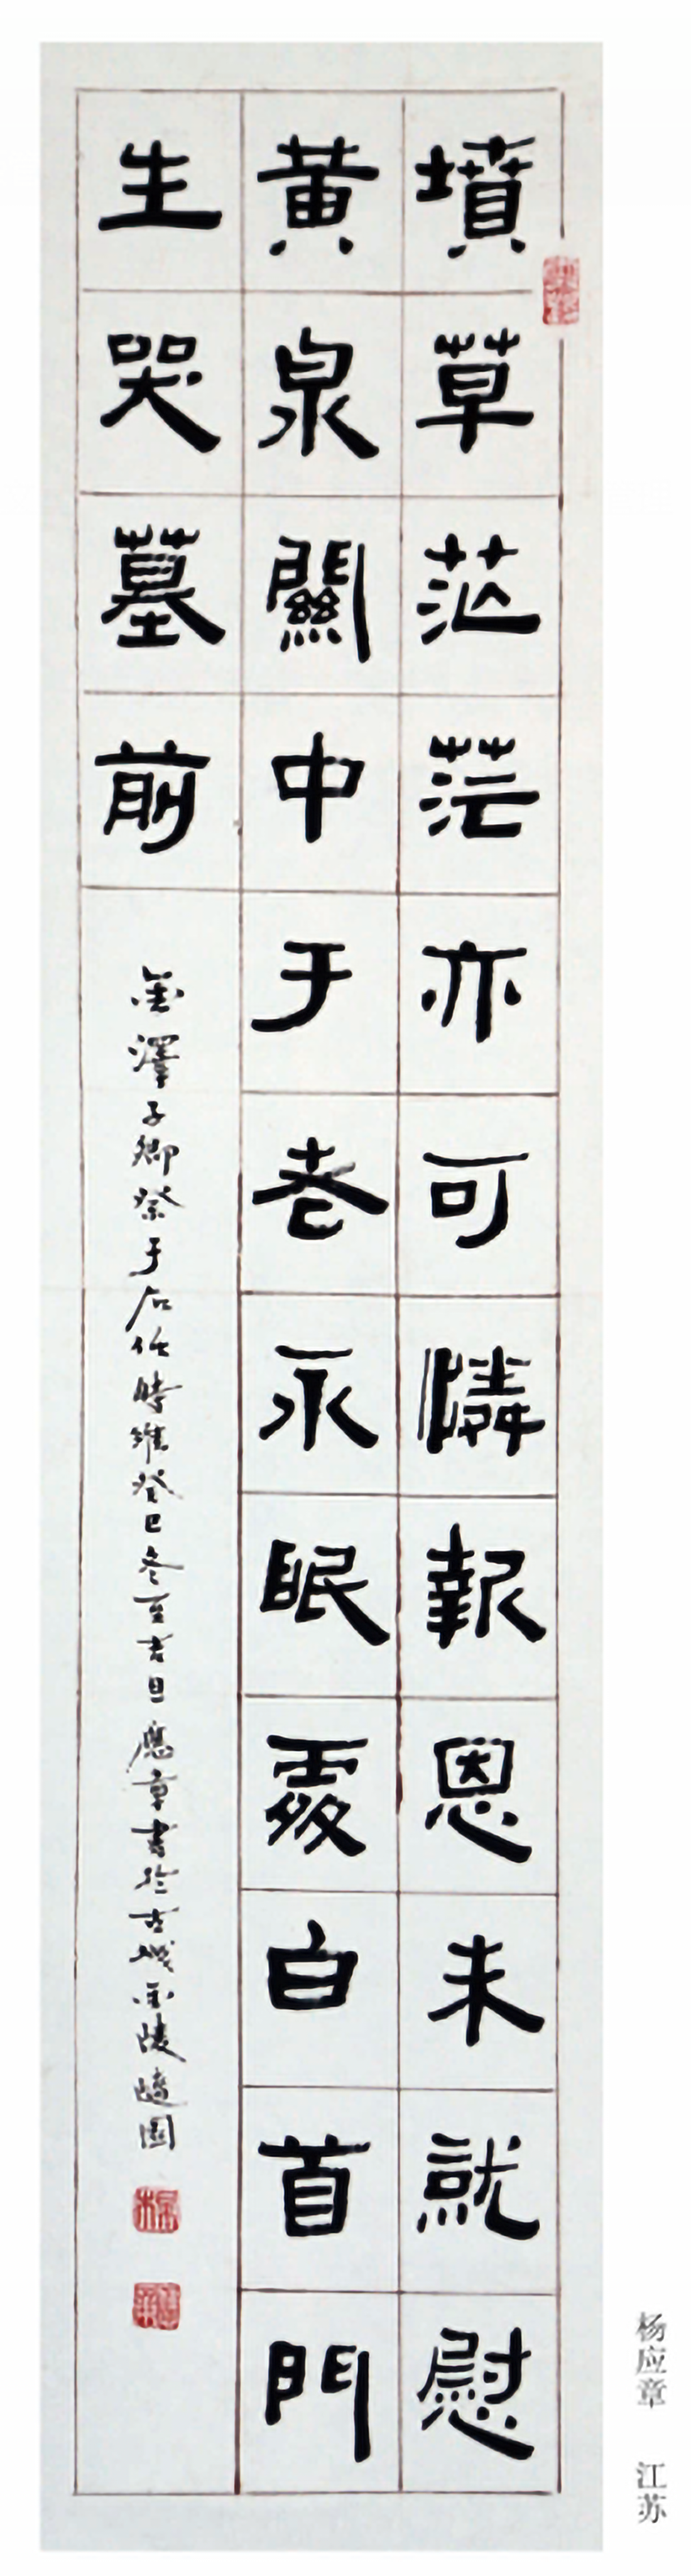 墳草茫茫亦可憐報恩未就慰
黄泉關中于老永眠處白首門
生哭墓前
金澤子卿祭于右任時維癸巳冬至吉旦應章書於古城金陵隨園
杨应章 江苏